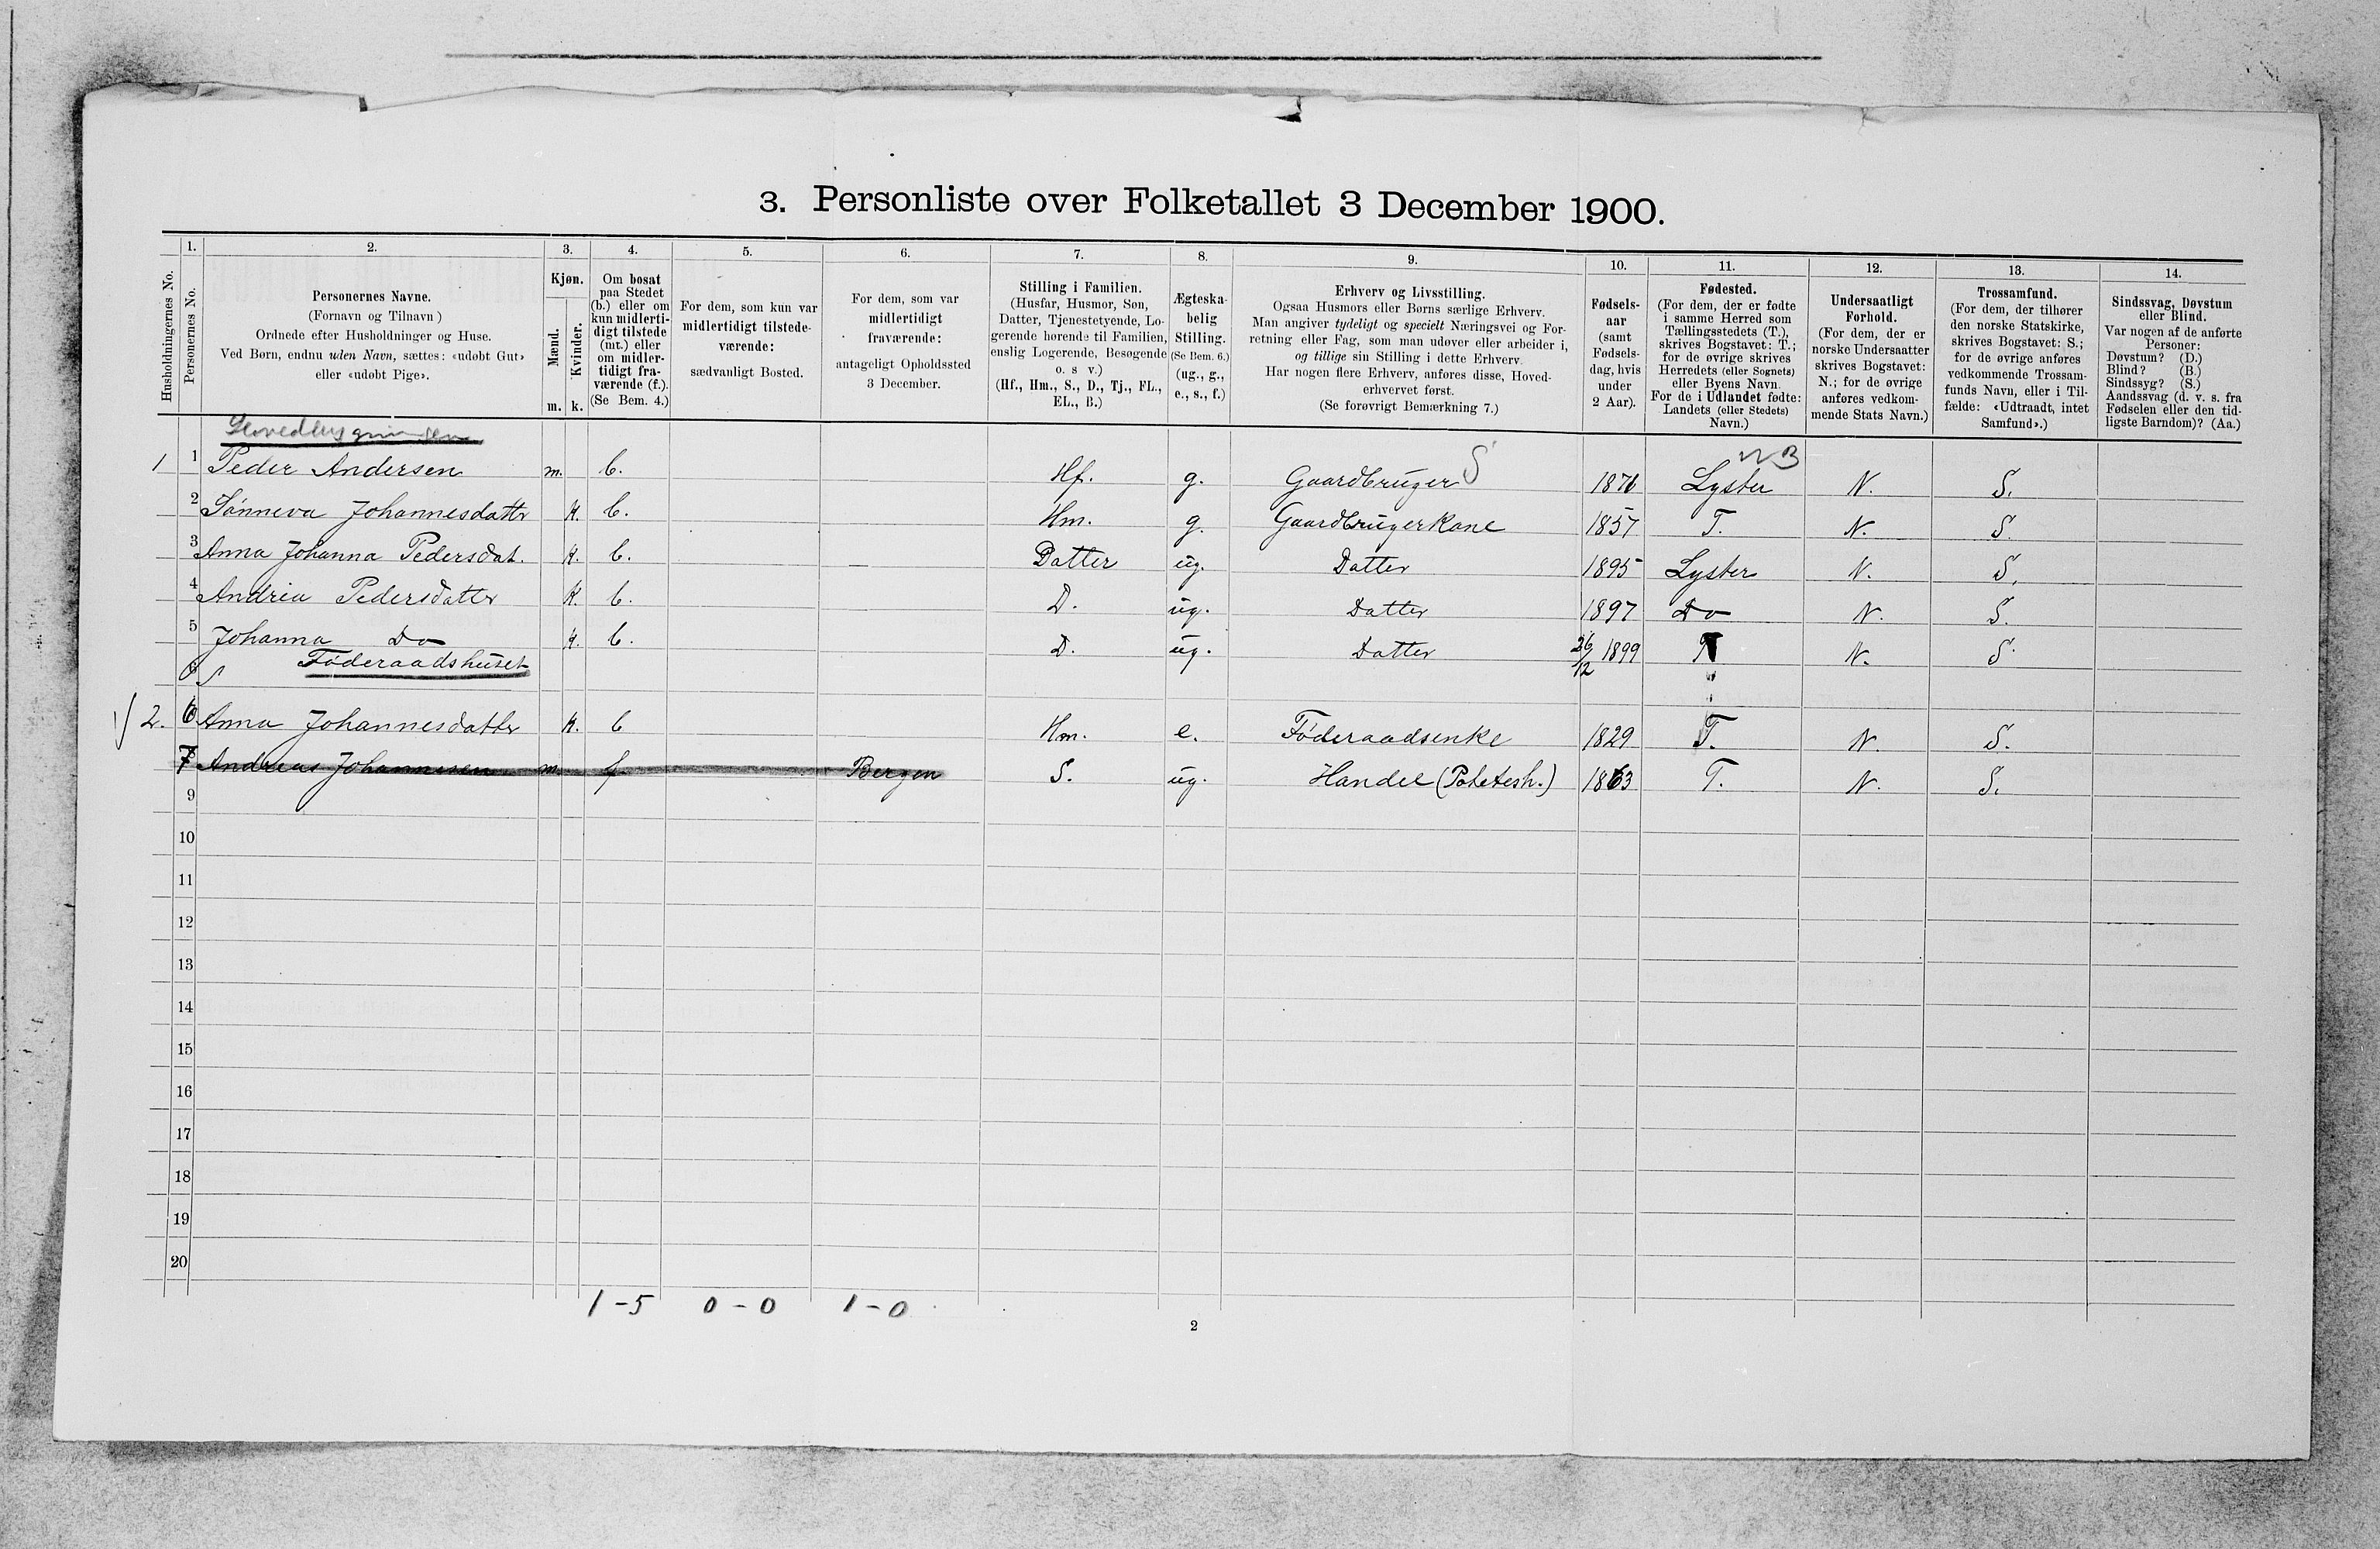 3. Personliste over Folketallet 3 December 1900.
1. 2. 3. 4. 5. 6. 7. 8. 9. 10. 11. 12. 13. 14.
Husholdningernes No.
Personernes No.
Personernes Navne.
(Fornavn og Tilnavn)
Ordnede efter Husholdninger og Huse.
Ved Børn, endnu uden Navn, sættes: «udøbt Gut»
eller «udøbt Pige».
Kjøn.
Mænd. Kvinder.
m. k.
Om bosat
paa Stedet
(b.) eller om
kun midlerti-
digt tilstede
(mt.) eller
om midler-
tidigt fra-
værende (f.).
(Se Bem. 4.)
For dem, som kun var
midlertidigt tilstede-
værende:
sædvanligt Bosted.
For dem, som var
midlertidigt
fraværende:
antageligt Opholdssted
3 December.
Stilling i Familien.
(Husfar, Husmor, Søn,
Datter, Tjenestetyende, Lo-
gerende hørende til Familien,
enslig Logerende, Besøgende
o. s v.)
(Hf., Hm., S., D., Tj., FL.,
EL., B.)
Ægteska-
belig
Stilling.
(Se Bem. 6.)
(ug., g.,
e., s., f.)
Erhverv og Livsstilling.
Ogsaa Husmors eller Børns særlige Erhverv.
Man angiver tydeligt og specielt Næringsvei og For-
retning eller Fag, som man udøver eller arbeider i,
og tillige sin Stilling i dette Erhverv.
Har nogen flere Erhverv, anføres disse, Hoved-
erhvervet først.
(Se forøvrigt Bemærkning 7.)
Fødsels-
aar
(samt
Fødsels-
dag, hvis
under
2 Aar).
Fødested.
(For dem, der er fødte
i samme Herred som
Tællingsstedets (T.),
skrives Bogstavet: T.;
for de øvrige skrives
Herredets (eller Sognets)
eller Byens Navn.
For de i Udlandet fødte:
Landets (eller Stedets)
Navn.)
Undersaatligt
Forhold.
(For dem, der er
norske Undersaatter
skrives Bogstavet:
N.; for de øvrige
anføres vedkom-
mende Stats Navn.)
Trossamfund.
(For dem, der tilhører
den norske Statskirke,
skrives Bogstavet: S.;
for de øvrige anføres
vedkommende Trossam-
funds Navn, eller i Til-
fælde: «Udtraadt, intet
Samfund».)
Sindssvag, Døvstum
eller Blind.
Var nogen af de anførte
Personer:
Døvstum? (D.)
Blind? (B.)
Sindssyg? (S.)
Aandssvag (d. v. s. fra
Fødselen eller den tid-
ligste Barndom)? (Aa.)
1 1 Peder Andersen m. b. Hf. g. Gaardbruger S 1871 Lyster N. S.
2 Sønneva Johannesdattr k. b. Hm. g. Gaardbrugerkone 1857 T. N. S.
3 Anna Johanna Pedersdat. k. b. Datter ug. Datter 1895 Lyster N. S.
4 Andrea Pedersdattr k. b. D. ug. Datter 1897 Do N. S.
5 Johanna Do k. b. D. ug. Datter 26/12 1899 T N. S.
Føderaadshuset
2. 6 Anna Johannesdattr k. b Hm. e. Føderaadsenke 1829 T. N. S.
7 Andreas Johannesen m. f Bergen S. ug. Handel (Potetesh.) 1863 T. N. S.
9
10
11
12
13
14
15
16
17
18
19
20
1 - 5 0 - 0 1 - 0
2